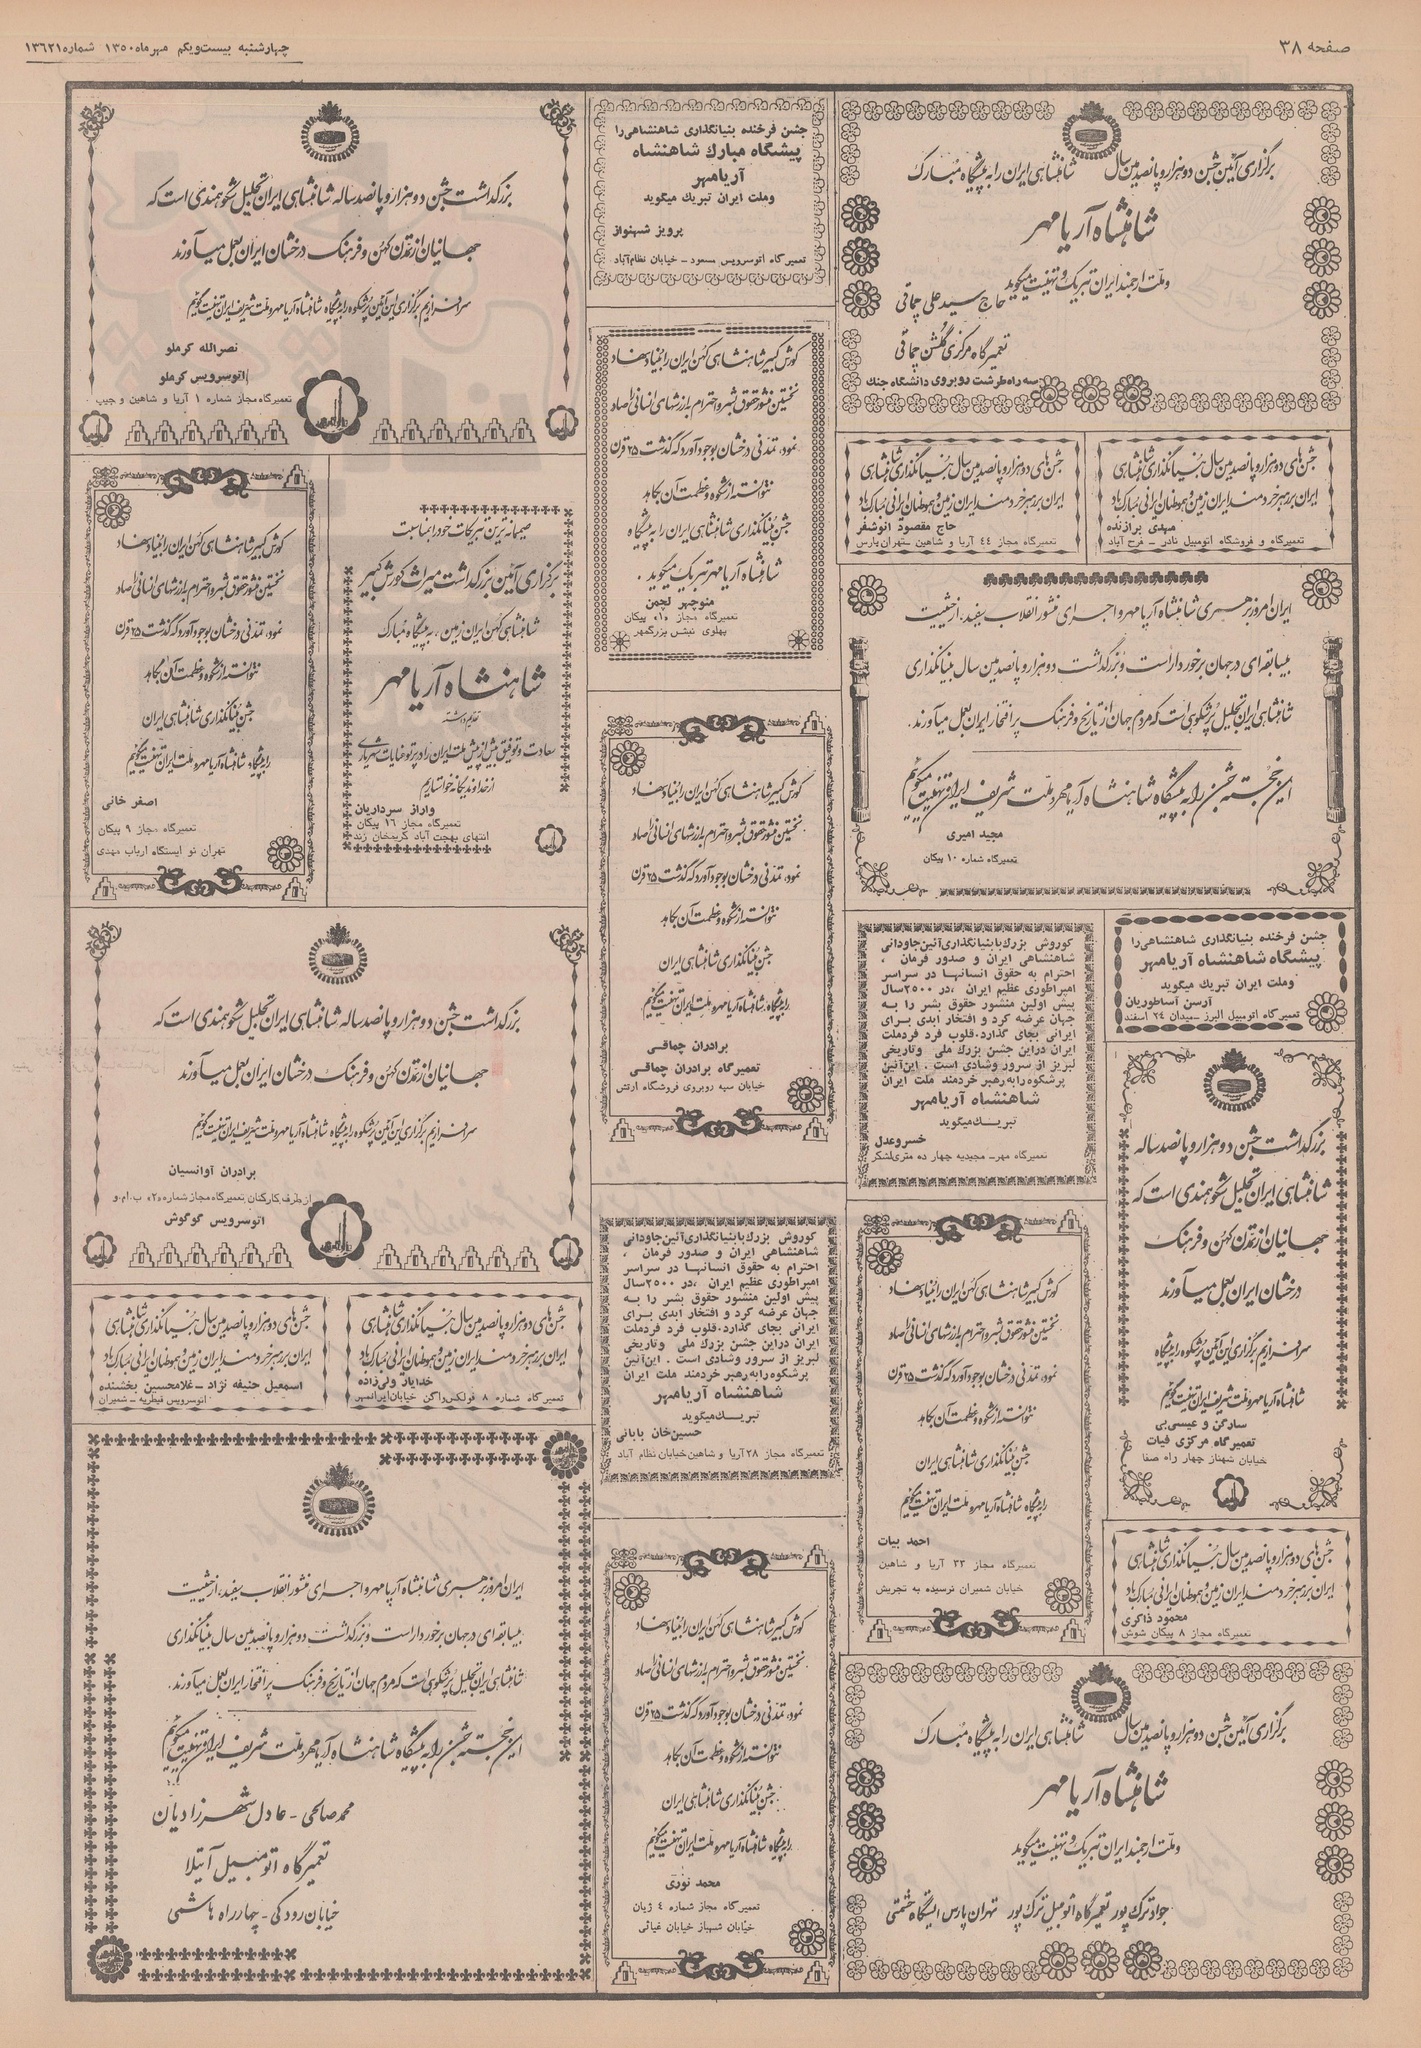 صفحه ۳۸
چهارشنبه بیست‌ویکم مهرماه ۱۳۵۰ شماره ۱۳۶۲۱
برگزاری آئین جشن دو هزار و پانصدمین سال شاهنشاهی ایران را به پیشگاه مبارک
شاهنشاه آریامهر
و ملت ارجمند ایران تبریک و تهنیت میگوید
حاج سید علی چماقی
تعمیرگاه مرکزی گلشن چماقی
سه راه طرشت روبروی دانشگاه جنگ
جشن فرخنده بنیانگذاری شاهنشاهی را
پیشگاه مبارك شاهنشاه
آریامهر
وملت ایران تبریك میگوید
پرویز شهنواز
تعمیرگاه اتوسرویس مسعود - خیابان نظام‌آباد
بزرگداشت جشن دو هزار و پانصد ساله شاهنشاهی ایران تجلیل شکوهمندی است که
جهانیان از تمدن کهن و فرهنگ درخشان ایران بعمل میآورند
سرافرازیم برگزاری این آئین پرشکوه را به پیشگاه شاهنشاه آریامهر و ملت شریف ایران تهنیت گوئیم
نصرالله کرملو
اتوسرویس کرملو
تعمیرگاه مجاز شماره ۱ آریا و شاهین و جیپ
جشن‌های دو هزار و پانصدمین سال بنیانگذاری شاهنشاهی
ایران بر رهبر خردمند ایران زمین و هموطنان ایرانی مبارک باد
مهدی برازنده
تعمیرگاه و فروشگاه اتومبیل نادر - فرح آباد
جشن‌های دو هزار و پانصدمین سال بنیانگذاری شاهنشاهی
ایران بر رهبر خردمند ایران زمین و هموطنان ایرانی مبارک باد
حاج مقصود انوشفر
تعمیرگاه مجاز ۴۴ آریا و شاهین - تهران‌پارس
ایران امروز به رهبری شاهنشاه آریامهر و اجرای منشور انقلاب سپید، از حیثیت
بیسابقه‌ای در جهان برخوردار است و بزرگداشت دو هزار و پانصدمین سال بنیانگذاری
شاهنشاهی ایران تجلیل پرشکوهی است که مردم جهان از تاریخ و فرهنگ پر افتخار ایران بعمل میآورند.
این خجسته جشن را به پیشگاه شاهنشاه آریامهر و ملت شریف ایران تهنیت میگویم
مجید امیری
تعمیرگاه شماره ۱۰ پیکان
جشن فرخنده بنیانگذاری شاهنشاهی را
پیشگاه شاهنشاه آریامهر
وملت ایران تبریك میگوید
آرسن آساطوریان
تعمیرگاه اتومبیل البرز - میدان ۲۴ اسفند
کوروش بزرك با بنیانگذاری آئین جاودانی
شاهنشاهی ایران و صدور فرمان ،
احترام به حقوق انسانها در سراسر
امپراطوری عظیم ایران ،در ۲۵۰۰سال
پیش اولین منشور حقوق بشر را به
جهان عرضه کرد و افتخار ابدی برای
ایرانی بجای گذارد.قلوب فرد فردملت
ایران دراین جشن بزرك ملی وتاریخی
لبریز از سرور وشادی است . این‌آئین
پرشکوه رابه رهبر خردمند ملت ایران
شاهنشاه آریامهر
تبریــك میگوید
خسروعدل
تعمیرگاه مهر- مجیدیه چهار ده متری لشگر
بزرگداشت جشن دو هزار و پانصد ساله
شاهنشاهی ایران تجلیل شکوهمندی است که
جهانیان از تمدن کهن و فرهنگ
درخشان ایران بعمل میآورند
سرافرازیم برگزاری این آئین پرشکوه را به پیشگاه
شاهنشاه آریامهر و ملت شریف ایران تهنیت گوئیم
سارگن و عیسی‌بی
تعمیرگاه مرکزی فیات
خیابان شهناز چهار راه صفا
جشن‌های دو هزار و پانصدمین سال بنیانگذاری شاهنشاهی
ایران بر رهبر خردمند ایران زمین و هموطنان ایرانی مبارک باد
محمود ذاکری
تعمیرگاه مجاز ۸ پیکان شوش
برگزاری آئین جشن دو هزار و پانصدمین سال شاهنشاهی ایران را به پیشگاه مبارک
شاهنشاه آریامهر
و ملت ارجمند ایران تبریک و تهنیت میگوید
جواد ترک پور تعمیرگاه اتومبیل ترک پور تهران پارس ایستگاه حشمتی
کورش کبیر شاهنشاهی کهن ایران را بنیاد نهاد
نخستین منشور حقوق بشر و احترام به ارزشهای انسانی را صادر
نمود، تمدنی درخشان بوجود آورد که گذشت ۲۵ قرن
نتوانسته از شکوه و عظمت آن بکاهد
جشن بنیانگذاری شاهنشاهی ایران را به پیشگاه
شاهنشاه آریامهر تبریک میگوید .
منوچهر لچمن
تعمیرگاه مجاز «۱» پیکان
پهلوی نبش بزرگمهر
کورش کبیر شاهنشاهی کهن ایران را بنیاد نهاد
نخستین منشور حقوق بشر و احترام به ارزشهای انسانی را صادر
نمود، تمدنی درخشان بوجود آورد که گذشت ۲۵ قرن
نتوانسته از شکوه و عظمت آن بکاهد
جشن بنیانگذاری شاهنشاهی ایران
را به پیشگاه، شاهنشاه آریامهر و ملت ایران تهنیت میگوئیم
برادران چماقی
تعمیرگاه برادران چماقی
خیابان سپه روبروی فروشگاه ارتش
کوروش بزرك با بنیانگذاری آئین جاودانی
شاهنشاهی ایران و صدور فرمان ،
احترام به حقوق انسانها در سراسر
امپراطوری عظیم ایران ،در ۲۵۰۰سال
پیش اولین منشور حقوق بشر را به
جهان عرضه کرد و افتخار ابدی برای
ایرانی بجای گذارد.قلوب فرد فردملت
ایران دراین جشن بزرك ملی وتاریخی
لبریز از سرور وشادی است . این‌آئین
پرشکوه رابه رهبر خردمند ملت ایران
شاهنشاه آریامهر
تبریــك میگوید
حسین‌خان بابائی
تعمیرگاه مجاز ۲۸ آریا و شاهین خیابان نظام آباد
کورش کبیر شاهنشاهی کهن ایران را بنیاد نهاد
نخستین منشور حقوق بشر و احترام به ارزشهای انسانی را صادر
نمود، تمدنی درخشان بوجود آورد که گذشت ۲۵ قرن
نتوانسته از شکوه و عظمت آن بکاهد
جشن بنیانگذاری شاهنشاهی ایران
را به پیشگاه شاهنشاه آریامهر و ملت ایران تهنیت میگوئیم
احمد بیات
تعمیرگاه مجاز ۳۳ آریا و شاهین
خیابان شمیران نرسیده به تجریش
کورش کبیر شاهنشاهی کهن ایران را بنیاد نهاد
نخستین منشور حقوق بشر و احترام به ارزشهای انسانی را صادر
نمود، تمدنی درخشان بوجود آورد که گذشت ۲۵ قرن
نتوانسته از شکوه و عظمت آن بکاهد
جشن بنیانگذاری شاهنشاهی ایران
را به پیشگاه شاهنشاه آریامهر و ملت ایران تهنیت میگوئیم
محمد نوری
تعمیرگاه مجاز شماره ۴ ژیان
خیابان شهباز خیابان غیاثی
صمیمانه ترین تبریکات خود را بمناسبت
برگزاری آئین بزرگداشت میراث کورش کبیر
شاهنشاهی کهن ایران زمین، به پیشگاه مبارک
شاهنشاه آریامهر
تقدیم داشته
سعادت و توفیق بیش از پیش ملت ایران را در پرتو عنایات شهریاری
از خداوند یگانه خواستاریم
واراز سرداریان
تعمیرگاه مجاز ۱۶ پیکان
انتهای بهجت آباد کریمخان زند
کورش کبیر شاهنشاهی کهن ایران را بنیاد نهاد
نخستین منشور حقوق بشر و احترام به ارزشهای انسانی را صادر
نمود، تمدنی درخشان بوجود آورد که گذشت ۲۵ قرن
نتوانسته از شکوه و عظمت آن بکاهد
جشن بنیانگذاری شاهنشاهی ایران
را به پیشگاه شاهنشاه آریامهر و ملت ایران تهنیت میگوئیم
اصغر خانی
تعمیرگاه مجاز ۹ پیکان
تهران نو ایستگاه ارباب مهدی
بزرگداشت جشن دو هزار و پانصد ساله شاهنشاهی ایران تجلیل شکوهمندی است که
جهانیان از تمدن کهن و فرهنگ درخشان ایران بعمل میآورند
سرافرازیم برگزاری این آئین پرشکوه را به پیشگاه شاهنشاه آریامهر و ملت شریف ایران تهنیت گوئیم
برادران آوانسیان
از طرف کارکنان تعمیرگاه مجاز شماره «۲» ب.ام.و
اتوسرویس گوگوش
جشن‌های دو هزار و پانصدمین سال بنیانگذاری شاهنشاهی
ایران بر رهبر خردمند ایران زمین و هموطنان ایرانی مبارک باد
خدایار ولی‌زاده
تعمیرگاه شماره ۸ فولکس‌واگن خیابان ایرانمهر
جشن‌های دو هزار و پانصدمین سال بنیانگذاری شاهنشاهی
ایران بر رهبر خردمند ایران زمین و هموطنان ایرانی مبارک باد
اسمعیل حنیفه نژاد - غلامحسین بخشنده
اتوسرویس قیطریه - شمیران
ایران امروز به رهبری شاهنشاه آریامهر و اجرای منشور انقلاب سپید، از حیثیت
بیسابقه‌ای در جهان برخوردار است و بزرگداشت دو هزار و پانصدمین سال بنیانگذاری
شاهنشاهی ایران تجلیل پرشکوهی است که مردم جهان از تاریخ و فرهنگ پر افتخار ایران بعمل میآورند.
این خجسته جشن را به پیشگاه شاهنشاه آریامهر و ملت شریف ایران تهنیت میگوئیم
محمد صالحی - عادل شهرزادیان
تعمیرگاه اتومبیل آتیلا
خیابان رودکی - چهارراه هاشمی